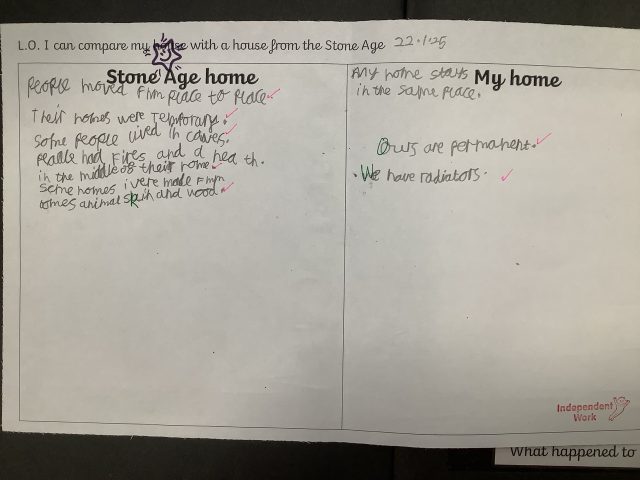 L.O. I can compare my house with a house from the Stone Age 22.1.25
Stone Age home
People moved from place to place
Their homes were temporary.
Some people lived in caves.
people had fires and a hea th.
in the middle of their home.
some homes were made from
animal skin and wood
My home
My home stays
in the same place.
Ours are permanent.
We have radiators.
Independent
Work
What happened to